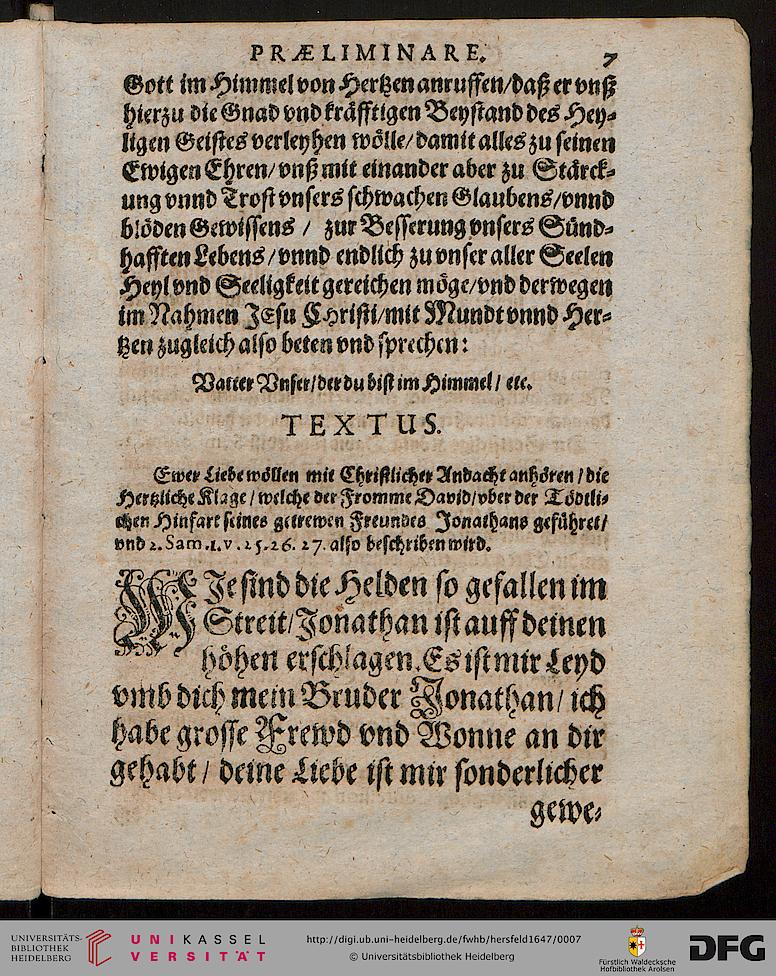 PRÆLIMINARE. 7
Gott im Himmel von Hertzen anruffen/daß er vnß
hierzu die Gnad vnd kräfftigen Beystand des Hey-
ligen Geistes verleyhen wölle/damit alles zu seinen
Ewigen Ehren/vnß mit einander aber zu Stärck-
ung vnnd Trost vnsers schwachen Glaubens/vnnd
blöden Gewissens / zur Besserung vnsers Sünd-
hafften Lebens/vnnd endlich zu vnser aller Seelen
Heyl vnd Seeligkeit gereichen möge/vnd derwegen
im Nahmen JEsu Christi/mit Mundt vnnd Her-
tzen zugleich also beten vnd sprechen:
Vatter Vnser/der du bist im Himmel/ etc.
TEXTUS.
Ewer Liebe wöllen mit Christlicher Andacht anhören / die
Hertzliche Klage / welche der Fromme David/vber der Tödtli-
chen Hinfart seines getrewen Freundes Jonathans geführet/
vnd 2. Sam.1.v.25.26.27. also beschriben wird.
WJe sind die Helden so gefallen im
Streit/Jonathan ist auff deinen
höhen erschlagen. Es ist mir Leyd
vmb dich mein Bruder Jonathan/ ich
habe grosse Frewd vnd Wonne an dir
gehabt / deine Liebe ist mir sonderlicher
gewe-
UNIVERSITÄTS-
BIBLIOTHEK
HEIDELBERG
UNIKASSEL
VERSITÄT
http://digi.ub.uni-heidelberg.de/fwhb/hersfeld1647/0007
© Universitätsbibliothek Heidelberg
Fürstlich Waldecksche
Hofbibliothek Arolsen
DFG